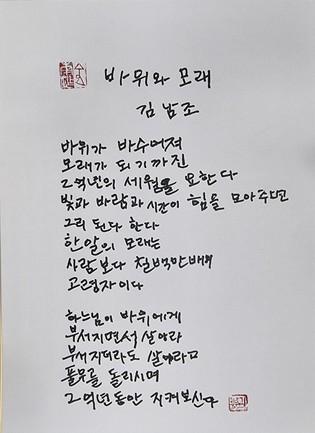 바위와 모래
김남조
바위가 바수어져
모래가 되기까진
그 억년의 세월을 요한다
빛과 바람과 시간이 힘을 모아주면
그리 된다 한다
한알의 모래는
사람보다 천백만배의
고령자이다
하느님이 바위에게
부서지면서 살아라
부서지더라도 살아라고
풀무를 돌리시며
그 억년동안 지켜보신다